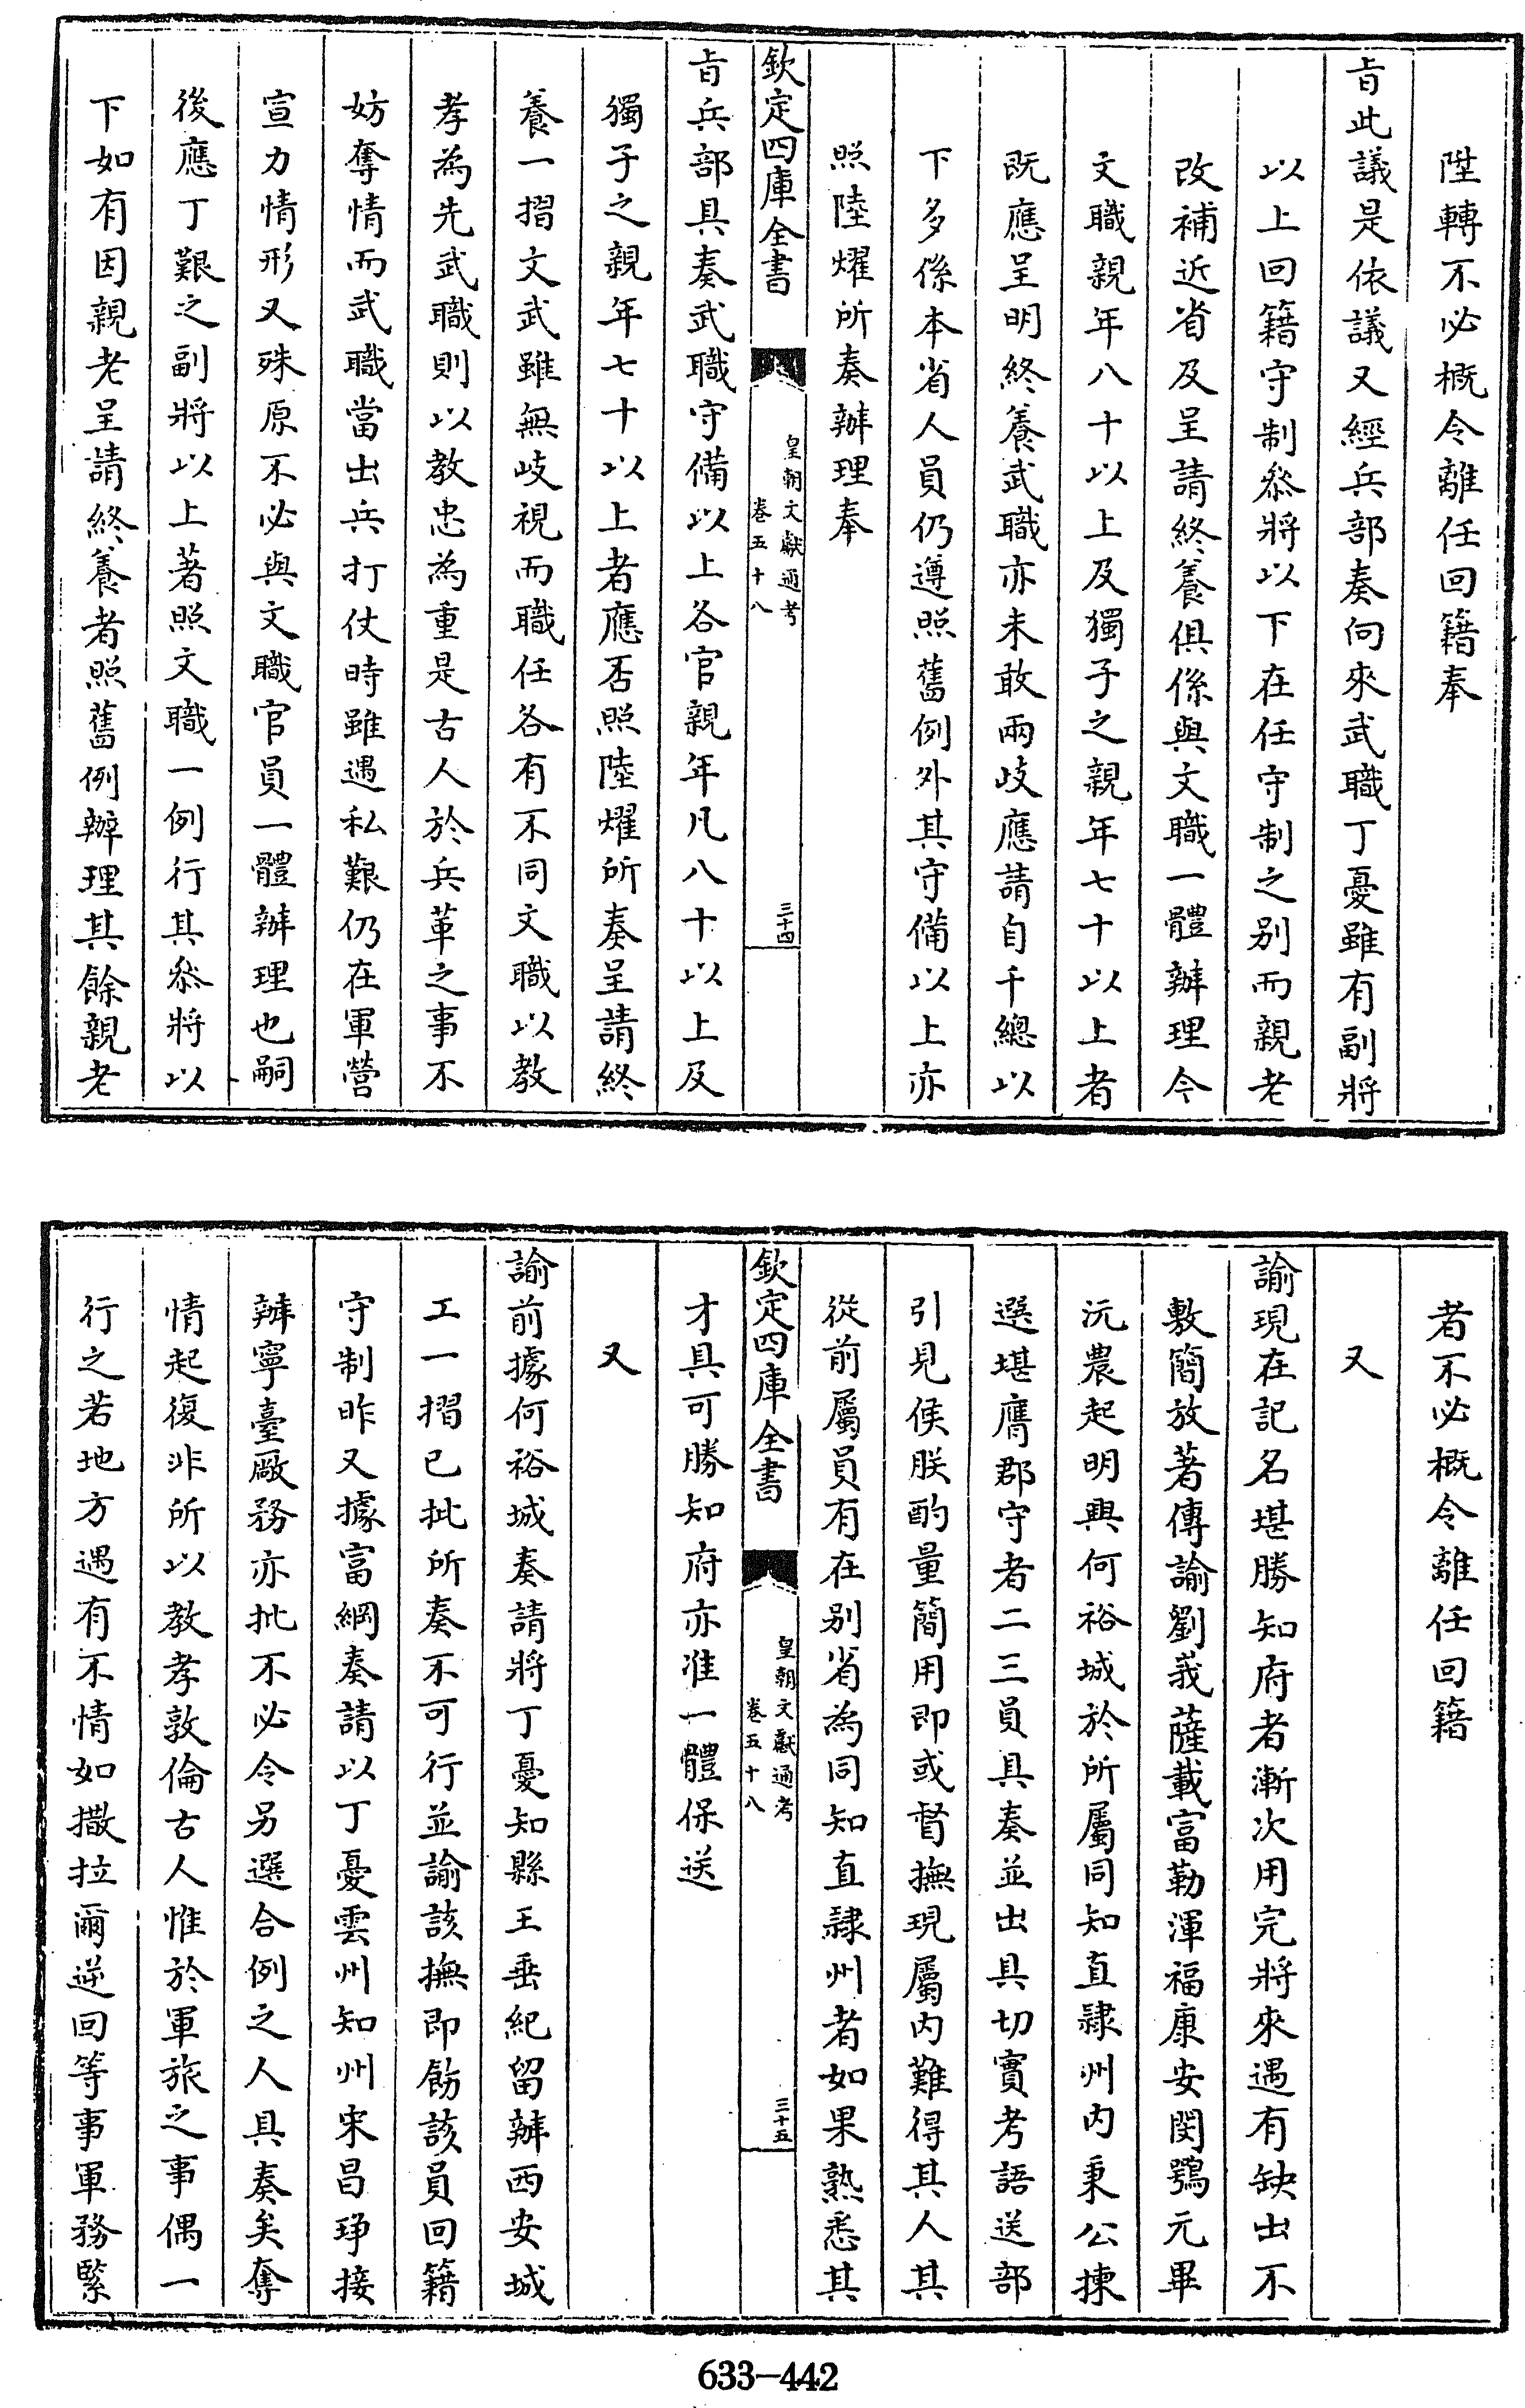 陞轉不必概令離任回籍奉
旨此議是依議又經兵部奏向來武職丁憂雖有副將
以上回籍守制叅將以下在任守制之别而親老
改補近省及呈請終養俱係與文職一體辦理今
文職親年八十以上及獨子之親年七十以上者
既應呈明終養武職亦未敢兩歧應請自千總以
下多係本省人員仍遵照舊例外其守備以上亦
照陸燿所奏辦理奉
欽定四庫全書
皇朝文獻通考
卷五十八
三十四
旨兵部具奏武職守備以上各官親年凡八十以上及
獨子之親年七十以上者應否照陸燿所奏呈請終
養一摺文武雖無歧視而職任各有不同文職以教
孝為先武職則以教忠為重是古人於兵革之事不
妨奪情而武職當出兵打仗時雖遇私艱仍在軍營
宣力情形又殊原不必與文職官員一體辦理也嗣
後應丁艱之副將以上著照文職一例行其叅將以
下如有因親老呈請終養者照舊例辦理其餘親老
者不必概令離任回籍
又
諭現在記名堪勝知府者漸次用完將來遇有缺出不
敷簡放著傳諭劉峩薩載富勒渾福康安閔鶚元畢
沅農起明興何裕城於所屬同知直隸州內秉公揀
選堪膺郡守者二三員具奏並出具切實考語送部
引見候朕酌量簡用即或督撫現屬内難得其人其
從前屬員有在别省為同知直隸州者如果熟悉其
欽定四庫全書
皇朝文獻通考
卷五十八
三十五
才具可勝知府亦准一體保送
又
諭前據何裕城奏請將丁憂知縣王垂紀留辦西安城
工一摺已批所奏不可行並諭該撫即飭該員回籍
守制昨又據富綱奏請以丁憂雲州知州宋昌琤接
辦寧臺厰務亦批不必令另選合例之人具奏矣奪
情起復非所以教孝敦倫古人惟於軍旅之事偶一
行之若地方遇有不情如撒拉爾逆回等事軍務緊
633-442